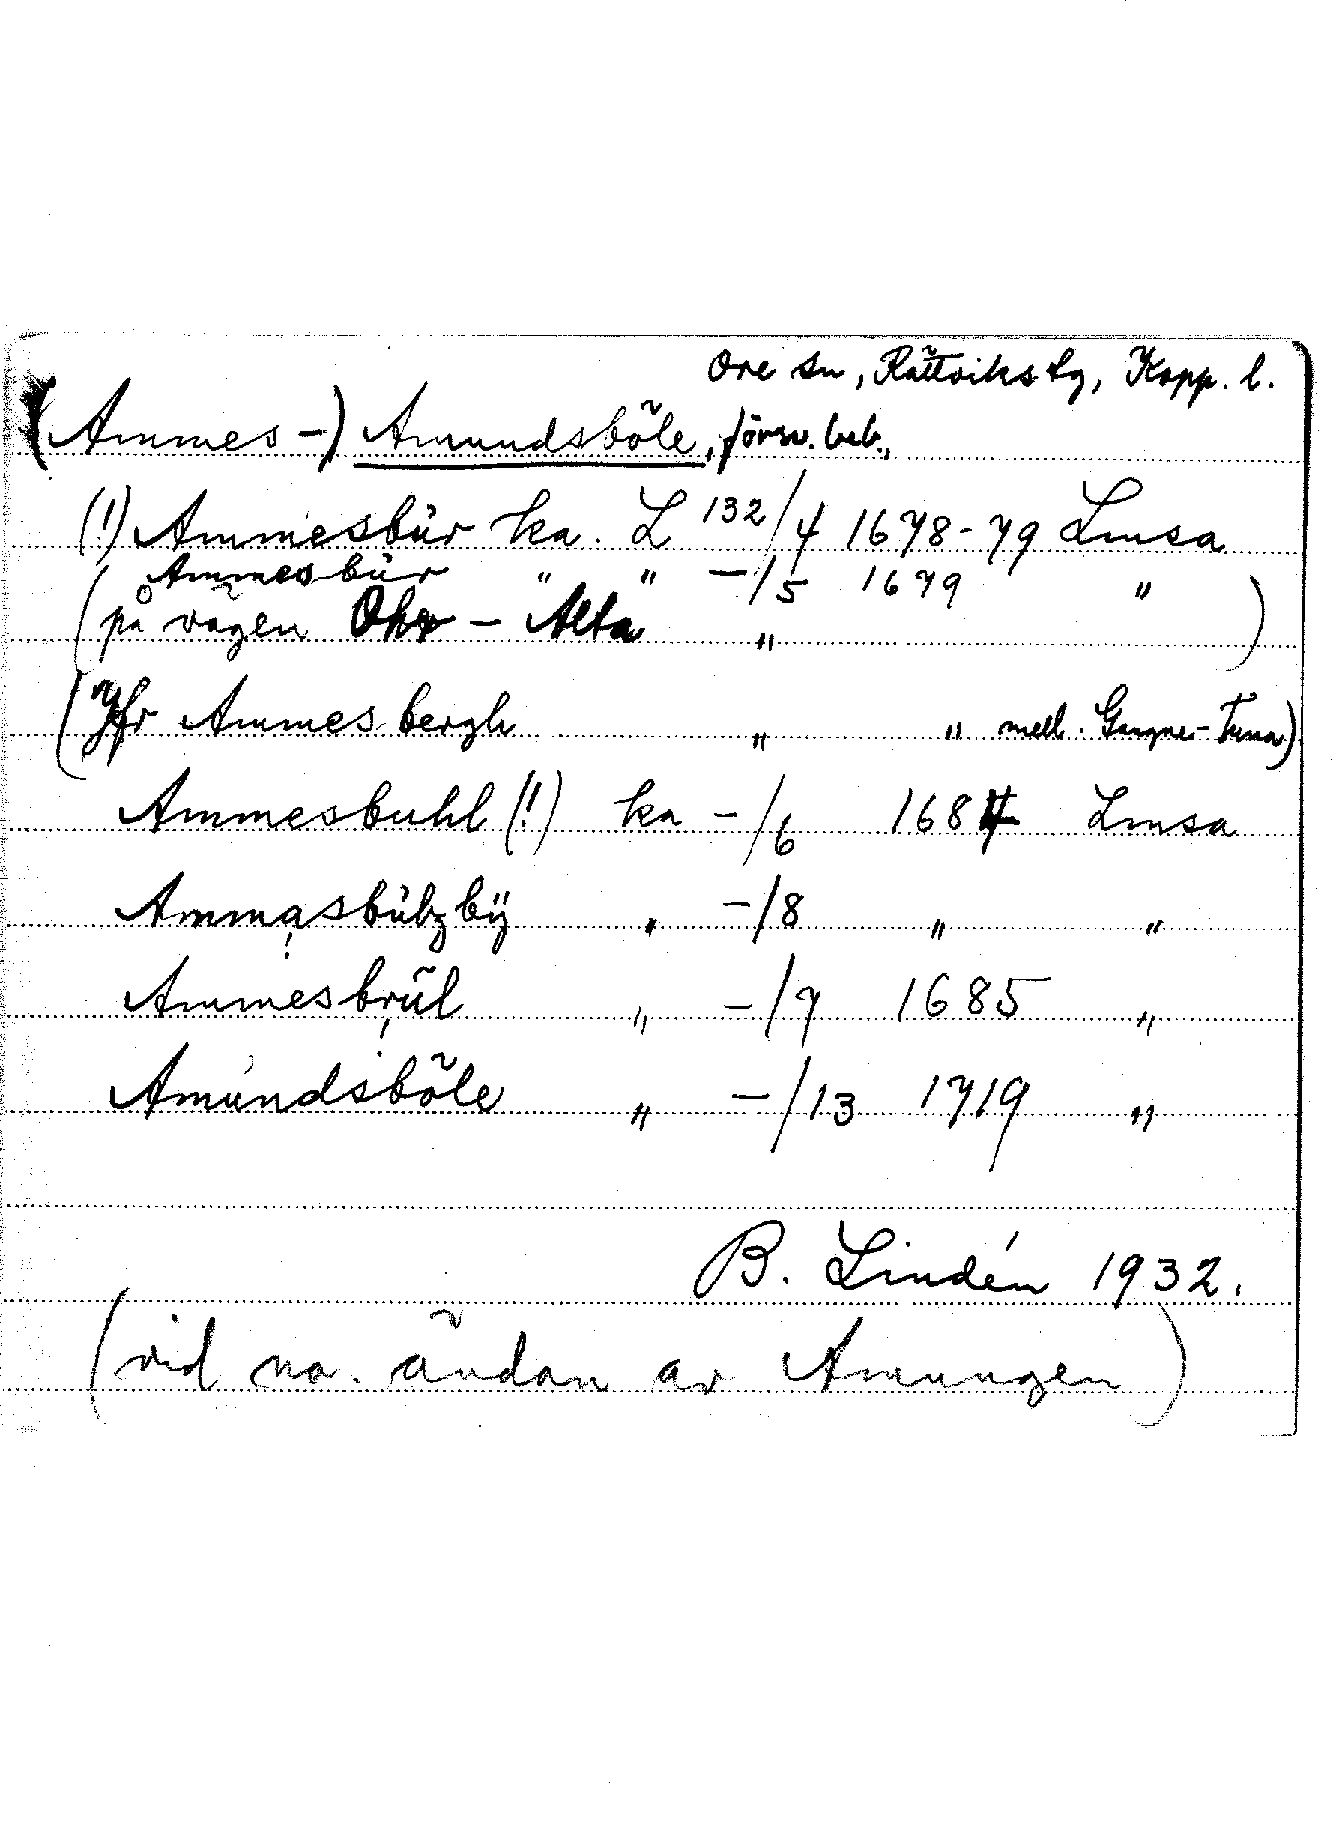 Ore sn, Rättviks tg, Kopp. l.
(Ammes-) Amundsböle, försv. beb.,
(!) Ammesbür ka. L 132/4 1678-79 Lmsa
Ammesbür " " -/5 1679 "
(på vägen Ohr - Alta " )
(Jfr Ammesbergh " " mell. Gagne-Tuna)
Ammesbuhl (!) ka -/6 1684 Lmsa
Ammasbülzbÿ " -/8 " "
Ammesbrül " -/7 1685 "
Amundsböle " -/13 1719 "
B. Lindén 1932.
(vid no. ändan av Amungen)